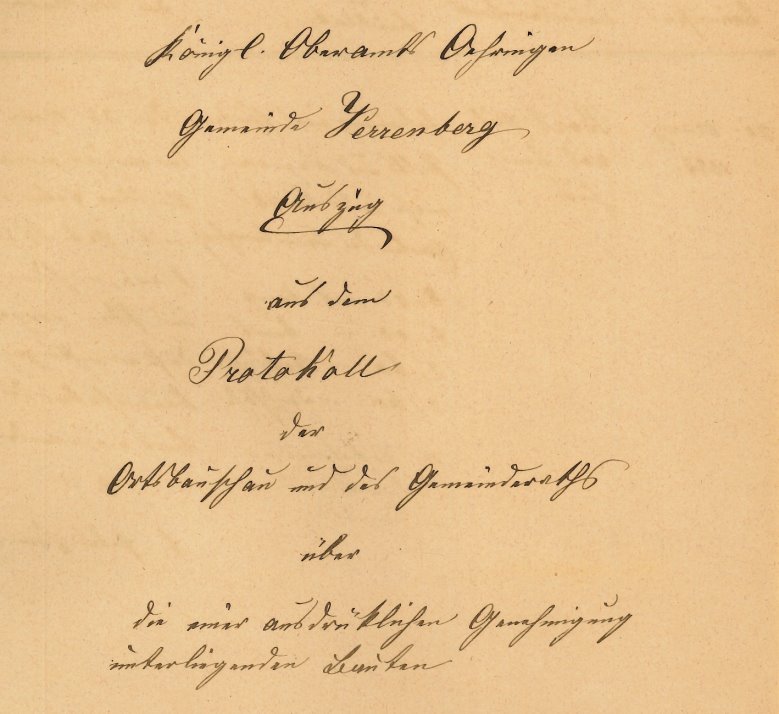 Königl. Oberamts Oehringen
Gemeinde Verrenberg
Auszug
aus dem
Protokoll
der
Ortsbauschau und des Gemeinderaths
über
die einer ausdrüklichen Genehmigung
unterliegenden Bauten